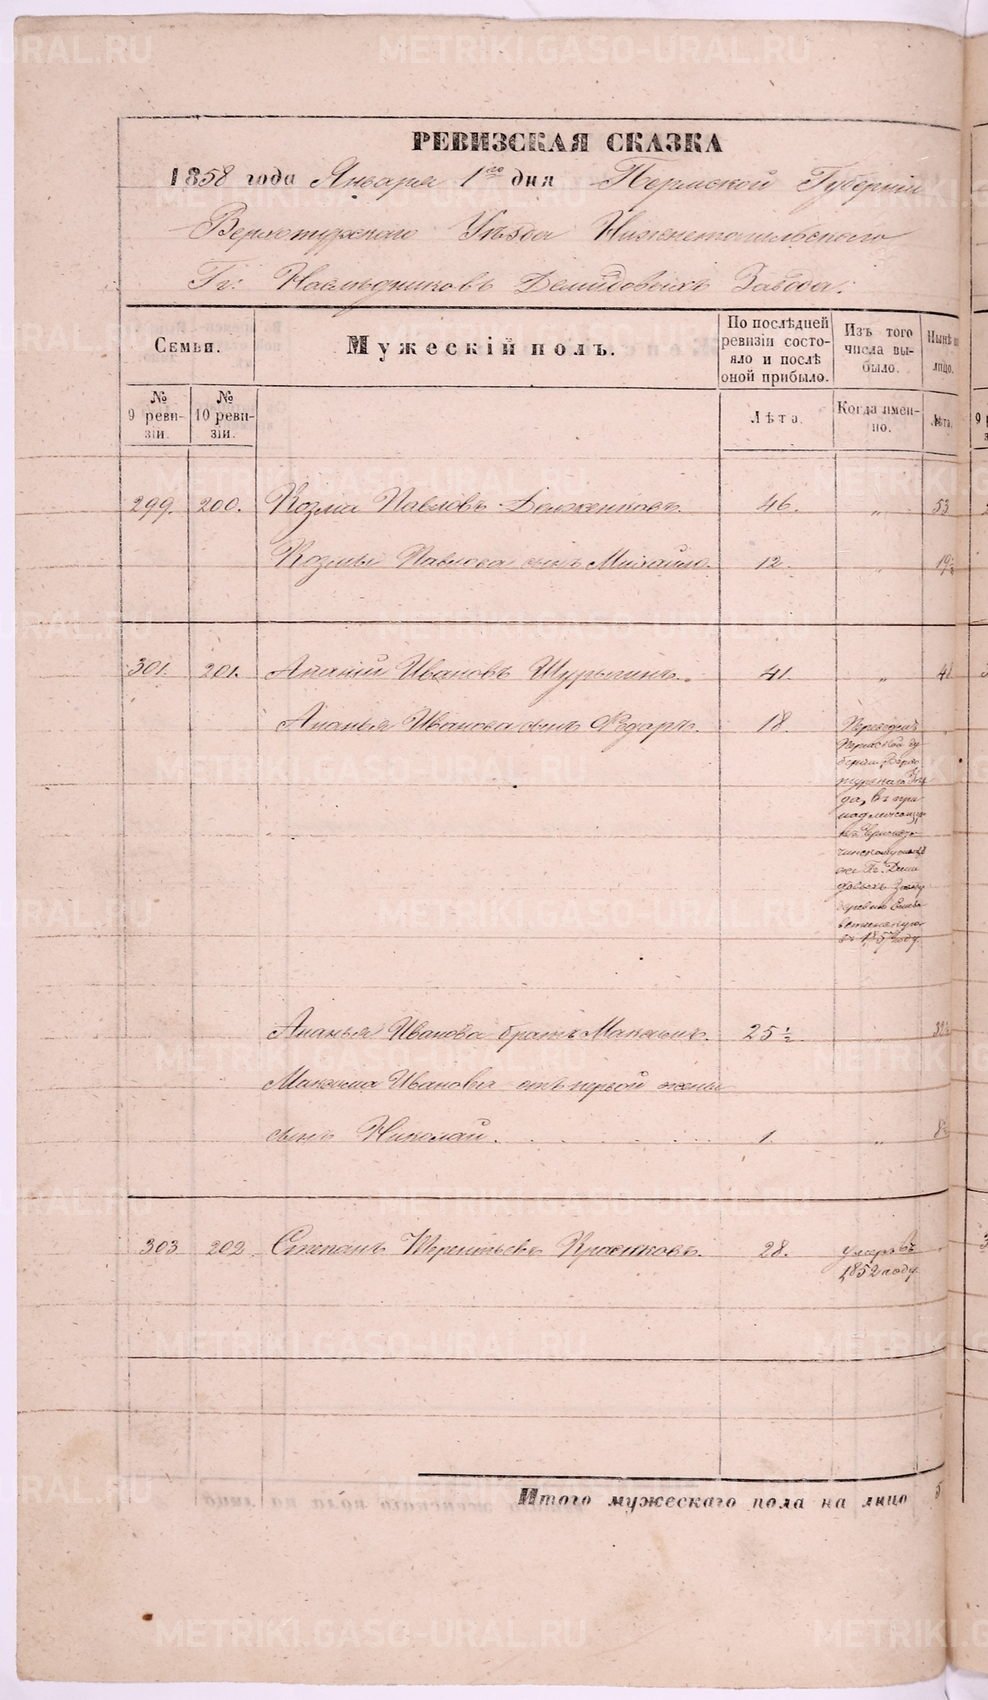 РЕВИЗСКАЯ СКАЗКА
1858 года Января 1го дня Пермской Губерніи
Верхотурскаго Уѣзда Нижнетагильскаго
Гг: Наслѣдниковъ Демидовыхъ Завода:
Семьи.
Мужескій полъ.
По послѣдней ревизіи состояло и послѣ оной прибыло.
Изъ того числа выбыло.
Нынѣ на лицо.
№ 9 ревизіи.
№ 10 ревизіи.
Лѣта.
Когда именно.
Лѣта.
299. 200. Козма Павловъ Долженковъ. 46. „ 53
Козмы Павлова сынъ Михайло. 12. „ 19½
301. 201. Ананій Ивановъ Шурыгинъ. 41. „
Ананья Иванова сынъ 18.
Переведенъ
Пермской Гу-
берніи Верхо-
турскаго Уѣз-
да, въ при-
надлежащ
Гг. Деми
довыхъ Заводу
деревню
въ 185 году
Ананья Иванова братъ Максимъ. 25½ „ 32½
Максима Иванова отъ первой жены
сынъ Николай. 1. „ 8½
303 202. Степанъ Терентьевъ 28. умеръ въ
1852 году
Итого мужескаго пола на лицо 5
METRIKI.GASO-URAL.RU